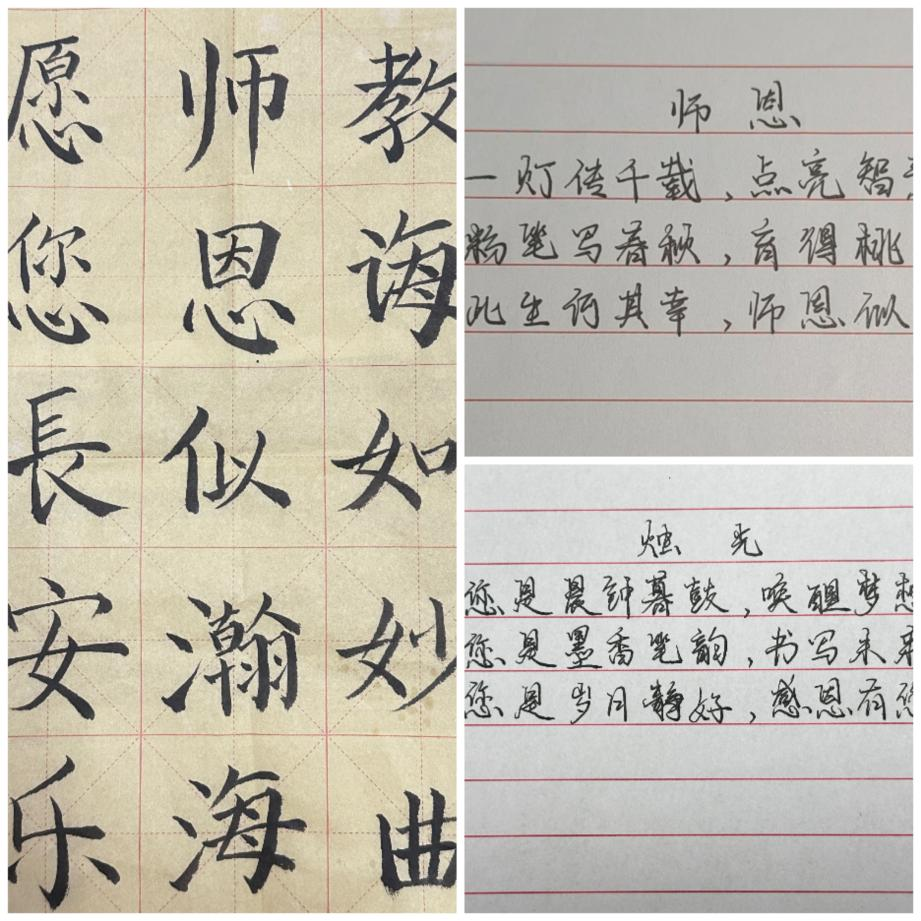 教诲如妙曲
师恩似瀚海
愿您長安乐
师恩
一灯传千载，点亮智
粉笔写春秋，育得桃
此生何其幸，师恩似
烛光
您是晨钟暮鼓，唤醒梦想
您是墨香笔韵，书写未来
您是岁月静好，感恩有您